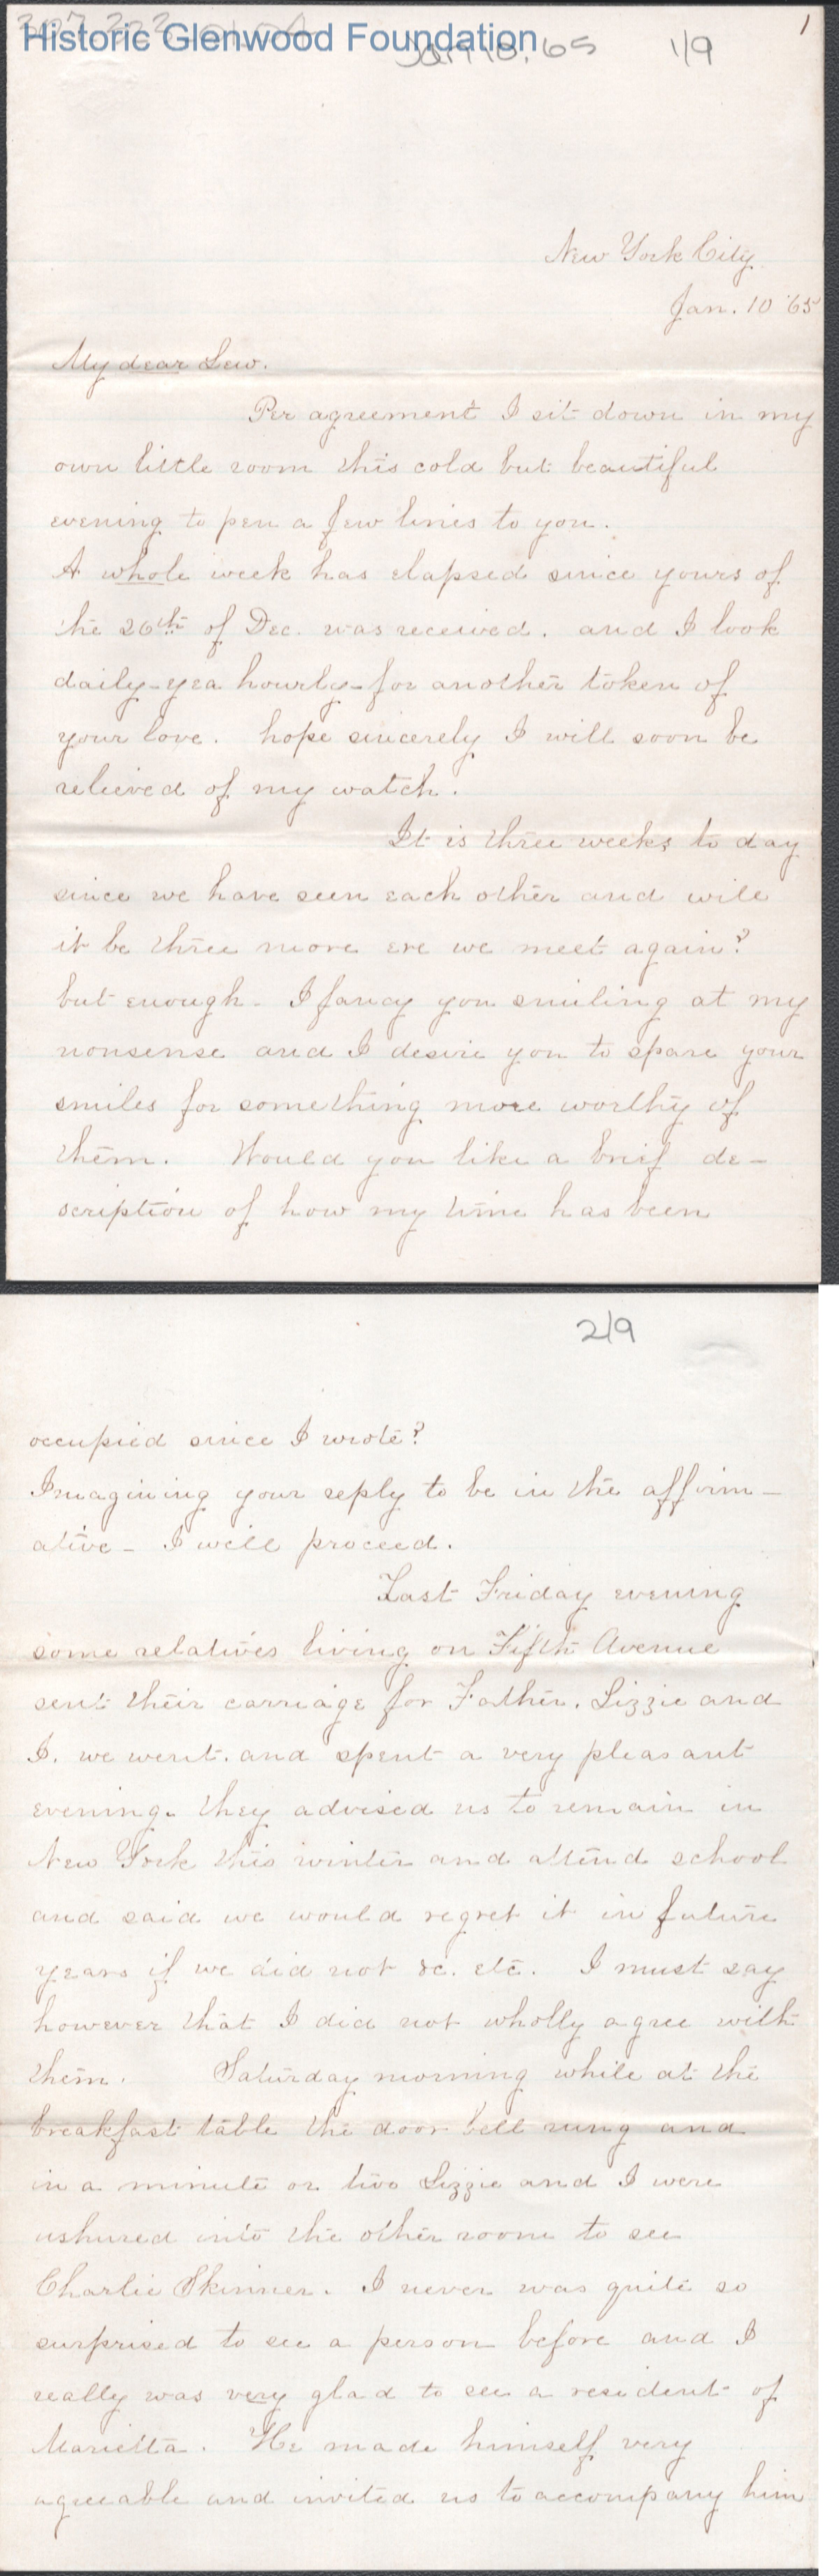 Historic Glenwood Foundation
Jan 10, 65
1/9
1
New York City
Jan. 10 '65
My dear Lew.
Per agreement I sit down in my
own little room this cold but beautiful
evening to pen a few lines to you.
A whole week has elapsed since yours of
the 26th of Dec. was received. and I look
daily - yea hourly - for another token of
your love. hope sincerely I will soon be
relieved of my watch.
It is three weeks to day
since we have seen each other and will
it be three more ere we meet again?
but enough - I fancy you smiling at my
nonsense and I desire you to spare your
smiles for something more worthy of
them. Would you like a brief de-
scription of how my time has been
2/9
occupied since I wrote?
Imagining your reply to be in the affirm-
ative - I will proceed.
Last Friday evening
some relatives living on Fifth Avenue
sent their carriage for Father, Lizzie and
I. we went. and spent a very pleasant
evening. they advised us to remain in
New York this winter and attend school
and said we would regret it in future
years if we did not &c. etc. I must say
however that I did not wholly agree with
them. Saturday morning while at the
breakfast table the door bell rung and
in a minute or two Lizzie and I were
ushured into the other room to see
Charlie Skinner. I never was quite so
surprised to see a person before and I
really was very glad to see a resident of
Marietta. He made himself very
agreeable and invited us to accompany him